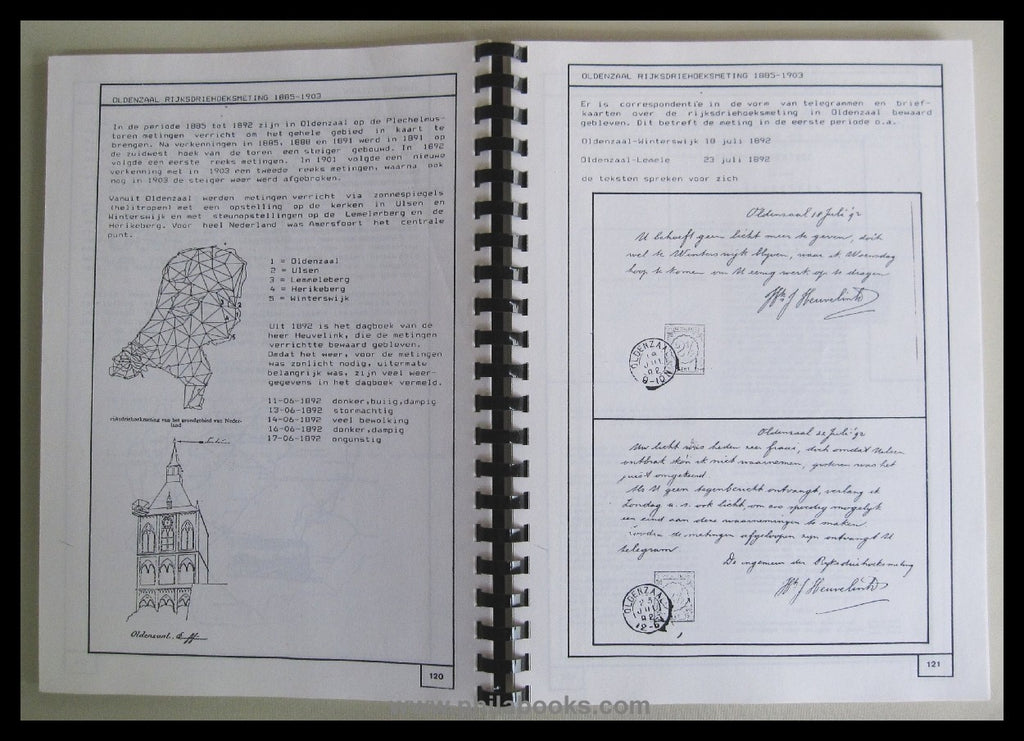 OLDENZAAL RIJKSDRIEHOEKSMETING 1885-1903
In de periode 1885 tot 1892 zijn in Oldenzaal op de Plechelmus-
toren metingen verricht om het gehele gebied in kaart te
brengen. Na verkenningen in 1885, 1888 en 1891 werd in 1891 op
de zuidwest hoek van de toren een steiger gebouwd. In 1892
volgde een eerste reeks metingen. In 1901 volgde een nieuwe
verkenning met in 1903 een tweede reeks metingen, waarna ook
nog in 1903 de steiger weer werd afgebroken.
Vanuit Oldenzaal werden metingen verricht via zonnespiegels
(helitropen) met een opstelling op de kerken in Ulsen en
Winterswijk en met steunopstellingen op de Lemelerberg en de
Herikeberg. Voor heel Nederland was Amersfoort het centrale
punt.
1 = Oldenzaal
2 = Ulsen
3 = Lemmeleberg
4 = Herikeberg
5 = Winterswijk
Uit 1892 is het dagboek van de
heer Heuvelink, die de metingen
verrichtte bewaard gebleven.
Omdat het weer, voor de metingen
was zonlicht nodig, uitermate
belangrijk was, zijn veel weer-
gegevens in het dagboek vermeld.
11-06-1892 donker,buiig,dampig
13-06-1892 stormachtig
14-06-1892 veel bewolking
16-06-1892 donker,dampig
17-06-1892 ongunstig
rijksdriehoeksmeting van het grondgebied van Neder-
land
Oldenzaal.
120
OLDENZAAL RIJKSDRIEHOEKSMETING 1885-1903
Er is correspondentie in de vorm van telegrammen en brief-
kaarten over de rijksdriehoeksmeting in Oldenzaal bewaard
gebleven. Dit betreft de meting in de eerste periode o.a.
Oldenzaal-Winterswijk 18 juli 1892
Oldenzaal-Lemele 23 juli 1892
de teksten spreken voor zich
Oldenzaal 18 Juli '92
U behoeft geen licht meer te geven, doch
wel te Winterswijk blijven, waar ik Woensdag
hoop te komen om U eenig werk op te dragen
Hk J Heuvelink
OLDENZAAL
Uw licht was heden zeer fraai, doch omdat Uelsen
ontbrak kon ik niet waarnemen, gisteren was het
juist omgekeerd.
Als U geen tegenbericht ontvangt, verlang ik
Zondag a. s. ook licht, om zoo spoedig mogelijk
een eind aan deze waarnemingen te maken
Zoodra de metingen afgeloopen zijn ontvangt U
telegram
De ingenieur der Rijksdriehoeksmeting
Hk J Heuvelink
OLDENZAAL
121
www.philabooks.com